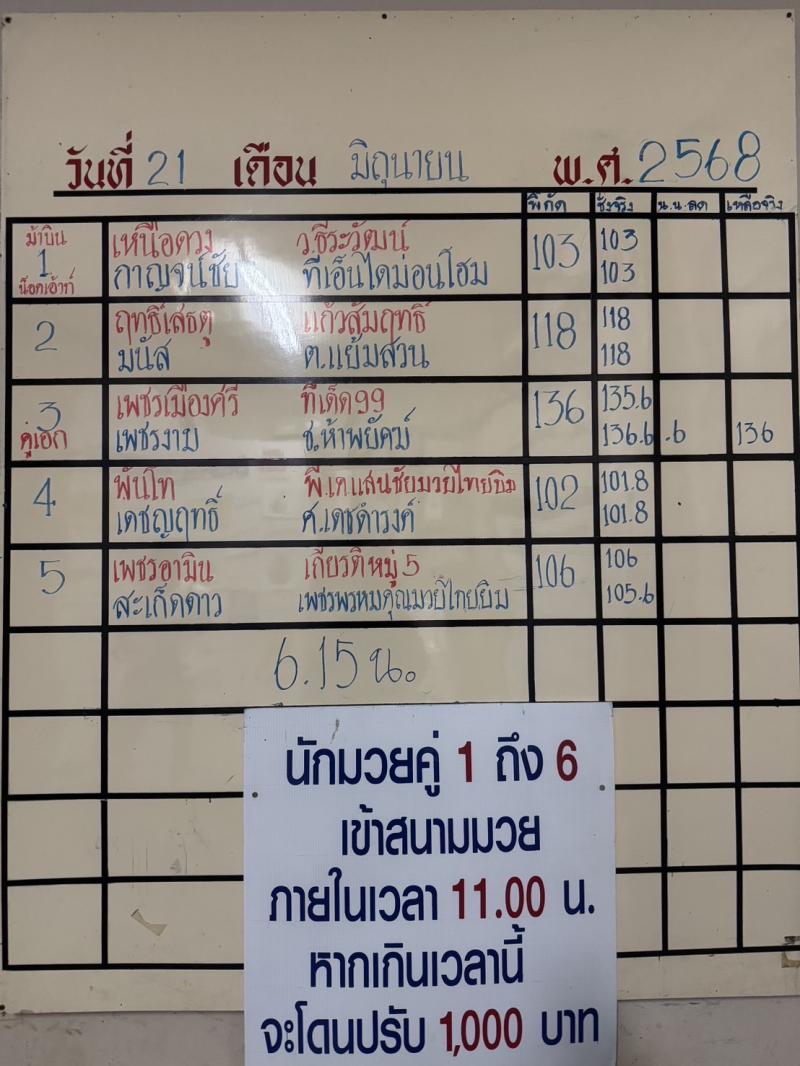 วันที่ 21 เดือน มิถุนายน พ.ศ. 2568
พิกัด ชั่งจริง น.น.ลด เหลือจริง
ม้าบิน
1
น็อคเอ้าท์
เหนือดวง ว.ธีระวัฒน์ 103 103
กาญจน์ชัย ที่เอ็นไดม่อนโฮม 103
2
ฤทธิ์เสธตุ แก้วสัมฤทธิ์ 118 118
มนัส ต.แย้มสวน 118
3
คู่เอก
เพชรเมืองศรี ทีเด็ด99 136 135.6
เพชรงาม ช.ห้าพยัคฆ์ 136.6 .6 136
4
พันโท พี.เคแสนชัยมวยไทยยิม 102 101.8
เดชญฤทธิ์ ศ.เดชดำรงค์ 101.8
5
เพชรอามิน เกียรติหมู่5 106 106
สะเก็ดดาว เพชรพรหมคุณมวยไทยยิม 105.6
6.15 น.
นักมวยคู่ 1 ถึง 6
เข้าสนามมวย
ภายในเวลา 11.00 น.
หากเกินเวลานี้
จะโดนปรับ 1,000 บาท